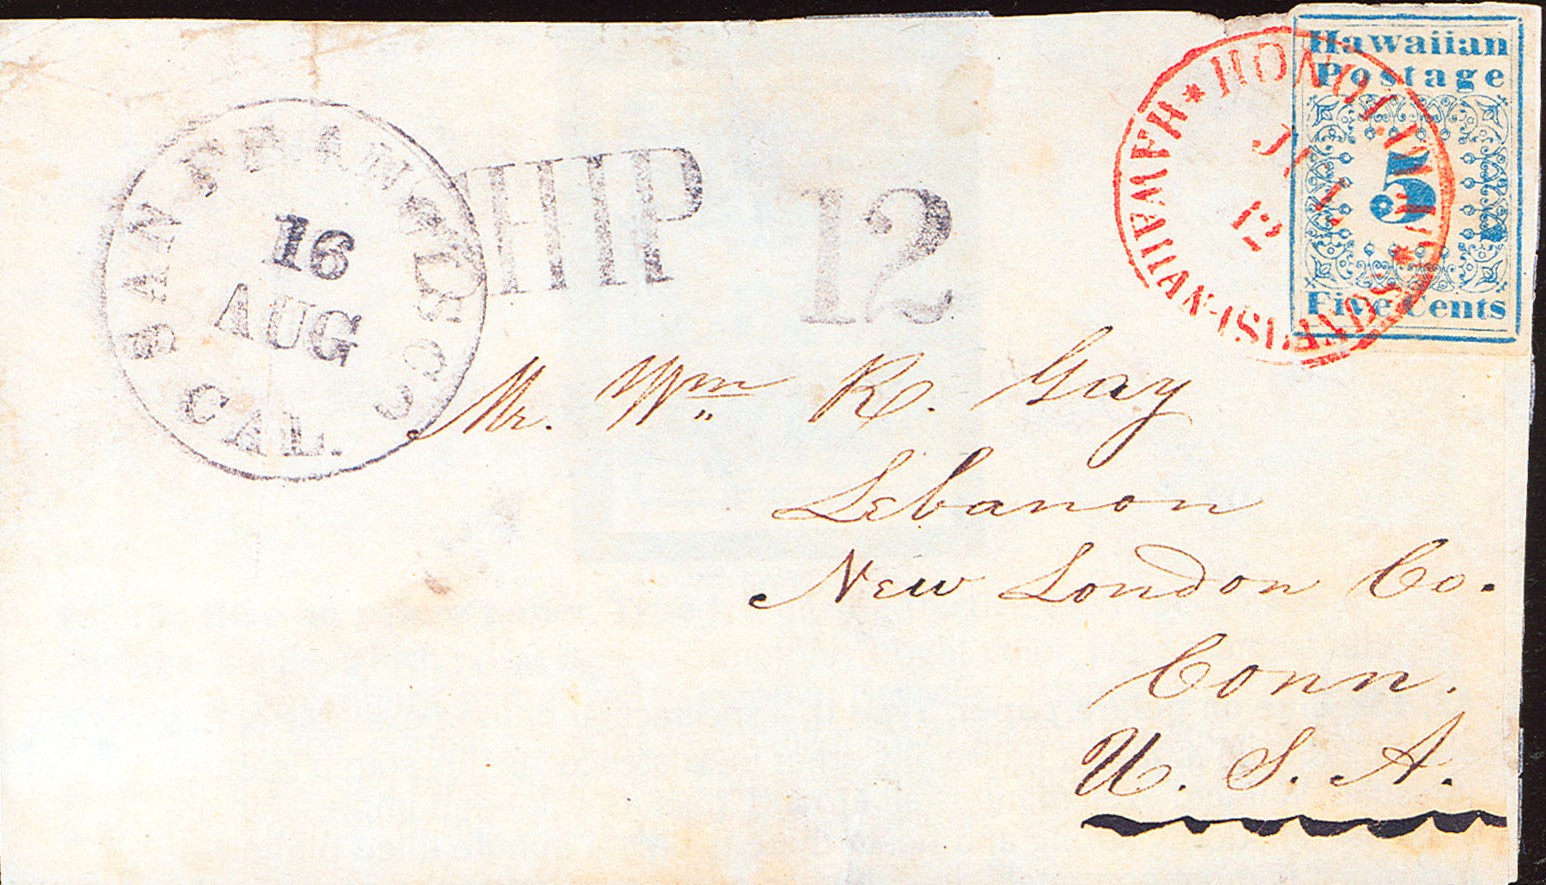 Hawaiian
Postage
5
Five Cents
★ HONOLULU ★
HAWAIIAN-ISLANDS
JUL
12
SAN FRANCISCO
CAL.
16
AUG
SHIP
12
Mr. Wm R. Gay
Lebanon
New London Co.
Conn.
U. S. A.